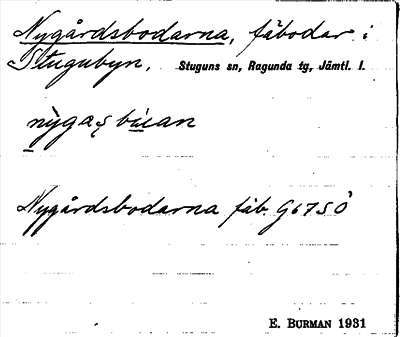 Nygårdsbodarna, fäbodar i
Stugubyn, Stuguns sn, Ragunda tg, Jämtl. l.
Nygårdsbodarna fäb. G6750
E. BURMAN 1931